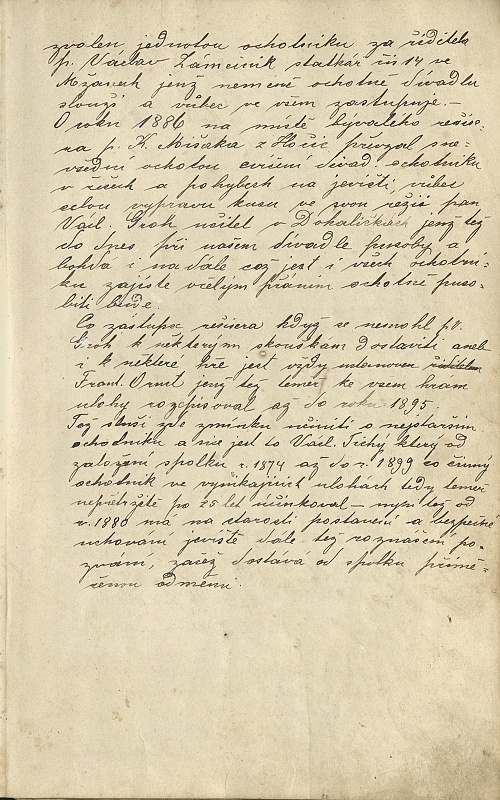 zvolen, jednotou ochotníku za řiditele
p. Václav Zamečnik statkář čís 14 ve
Mžanech jenž nemeně ochotně divadlu
slouží a vůbec ve všem zastupuje. –
O roku 1886 na místě bývalého režise-
ra p. K. Mišáka z Hořic převzal sne-
všední ochotou cvičení divad. ochotníku
v řečech a pohybech na jevišti, vůbec
celou vypravu kusu ve svou režii pan
Václ. Groh učitel v Dohaličkách jenž též
do dnes při našem divadle pusobý a
bohda i na dále což jest i všech ochotní-
ku zajiste vřelým přáním ochotně puso-
biti bude.
Co zástupce režisera když se nemohl p. V.
Groh k některým skouškam Dostaviti aneb
i k některé hře jest vždy ustanoven řiditelem
Frant. Ornst jenž též temeř ke všem hram
ulohy rozepisoval až do roku 1895.
Též sluší zde zminku učiniti o nejstaršim
ochotníku a sice jest to Václ. Tichý který od
založení spolku r. 1874 až do r. 1899 co činný
ochotník ve vynikajících ulohách tedy temeř
nepřetržitě po 25 let učinkoval – nyni též od
r. 1880 má na starosti postavení a bezpečné
uchování jeviště dále též roznašení po-
zvání, začež dostává od spolku přimě-
řenou odměnu.